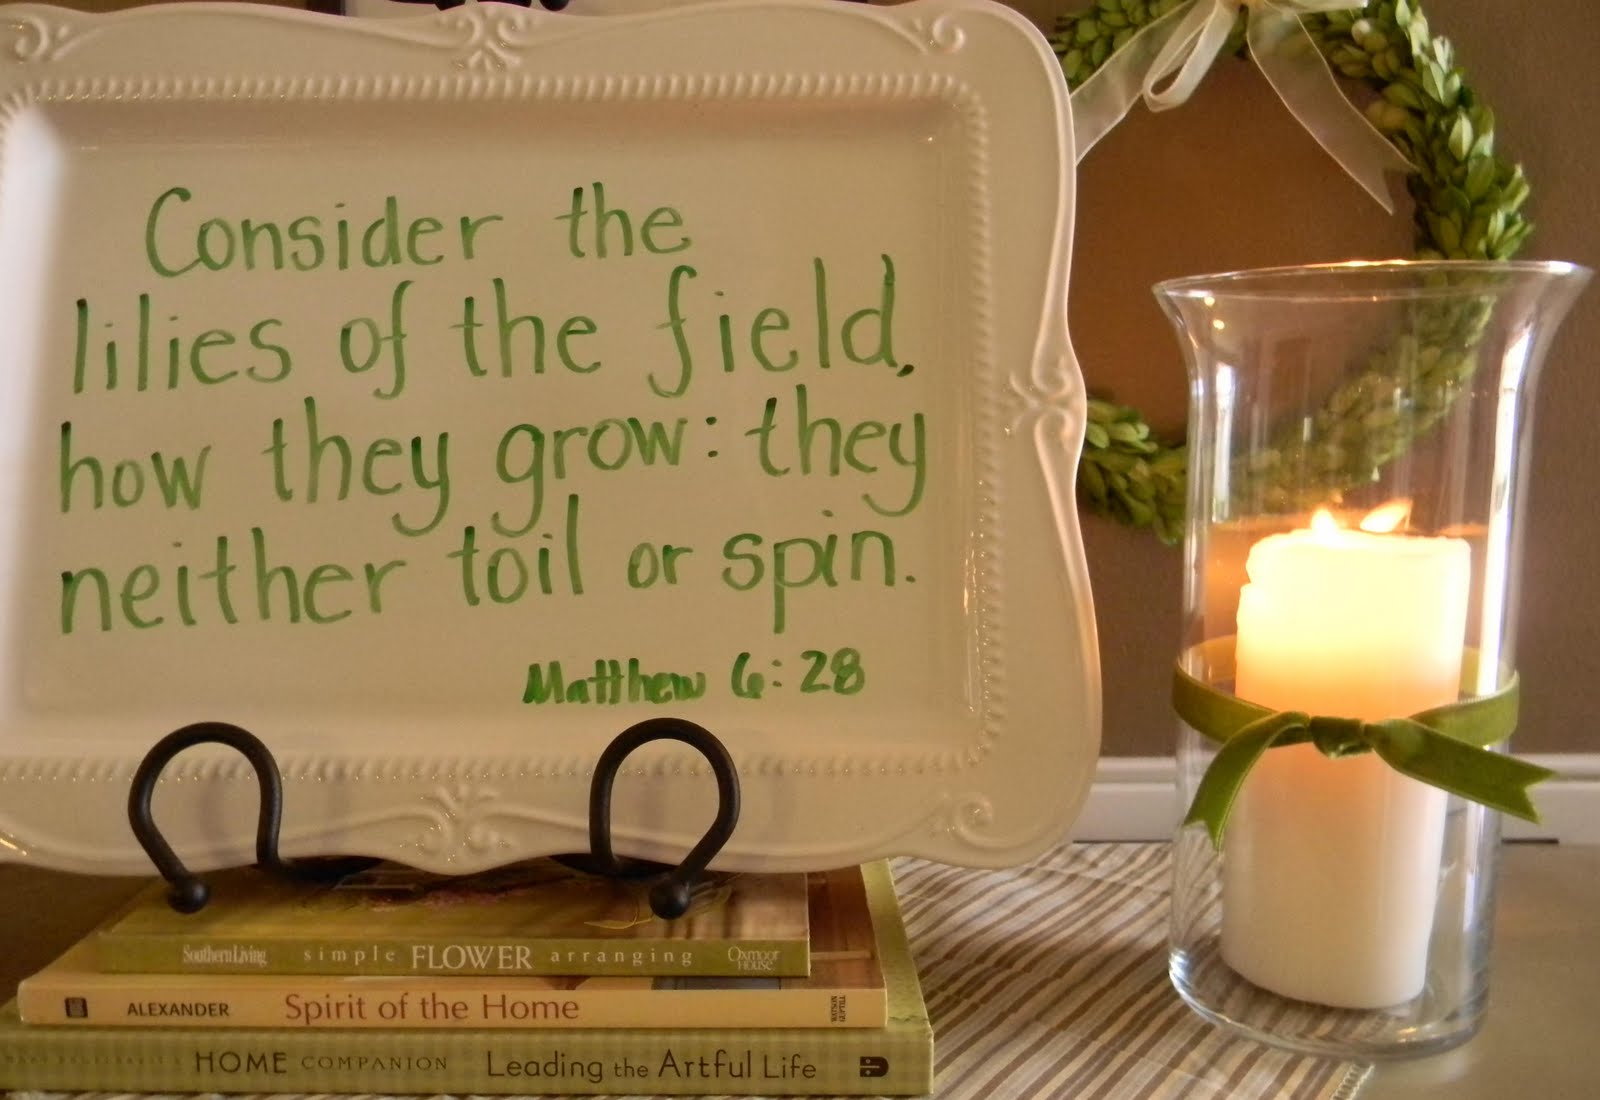 Consider the
lilies of the field,
how they grow: they
neither toil or spin.
Matthew 6:28
Southern Living simple FLOWER arranging Oxmoor House
ALEXANDER Spirit of the Home WATSON GUPTILL
HOME COMPANION Leading the Artful Life